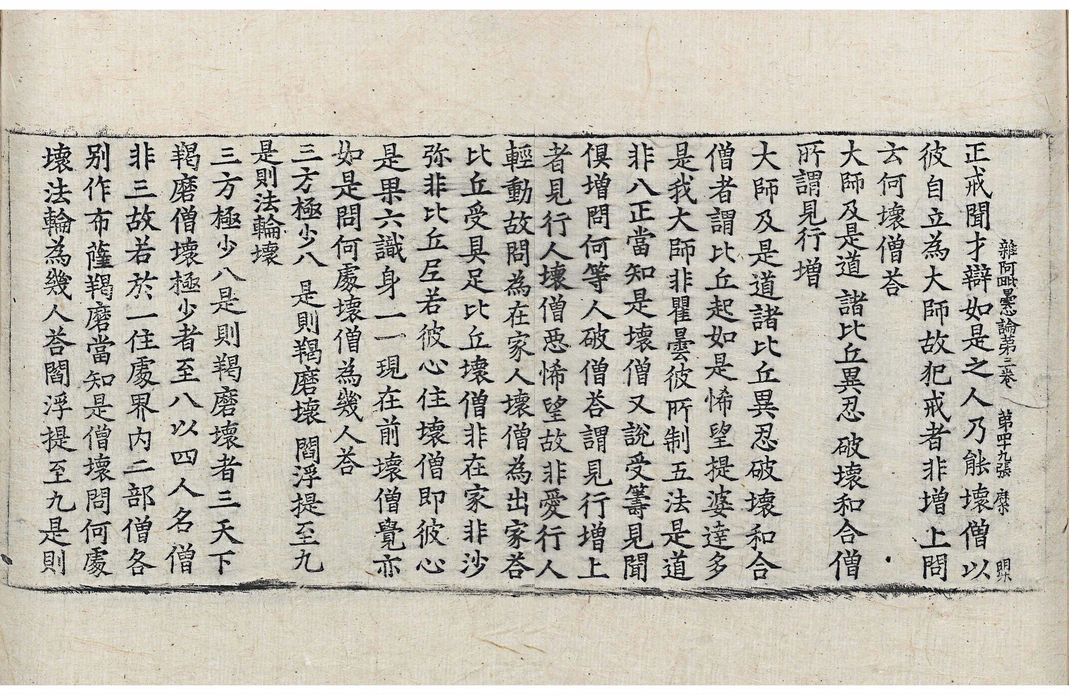 雜阿毗曇心論第三卷 第四十九張 縻
正戒聞才辯如是之人乃能壞僧以
彼自立為大師故犯戒者非增上問
云何壞僧荅
大師及是道 諸比丘異忍 破壞和合僧
所謂見行增
大師及是道諸比丘異忍破壞和合
僧者謂比丘起如是悕望提婆達多
是我大師非瞿曇彼所制五法是道
非八正當知是壞僧又說受籌見聞
俱增問何等人破僧荅謂見行增上
者見行人壞僧惡悕望故非愛行人
輕動故問為在家人壞僧為出家荅
比丘受具足比丘壞僧非在家非沙
弥非比丘尼若彼心住壞僧即彼心
是果六識身一一現在前壞僧覺亦
如是問何處壞僧為幾人荅
三方極少八 是則羯磨壞 閻浮提至九
是則法輪壞
三方極少八是則羯磨壞者三天下
羯磨僧壞極少者至八以四人名僧
非三故若於一住處界內二部僧各
別作布薩羯磨當知是僧壞問何處
壞法輪為幾人荅閻浮提至九是則